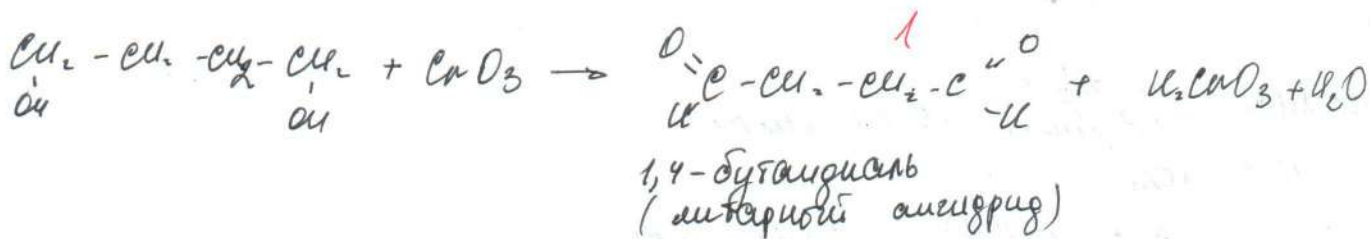 1
CH₂ - CH₂ - CH₂ - CH₂ + CrO₃ → O=C - CH₂ - CH₂ - C=O + H₂CrO₃ + H₂O
OH OH H H
1,4-бутандиаль
(янтарный ангидрид)